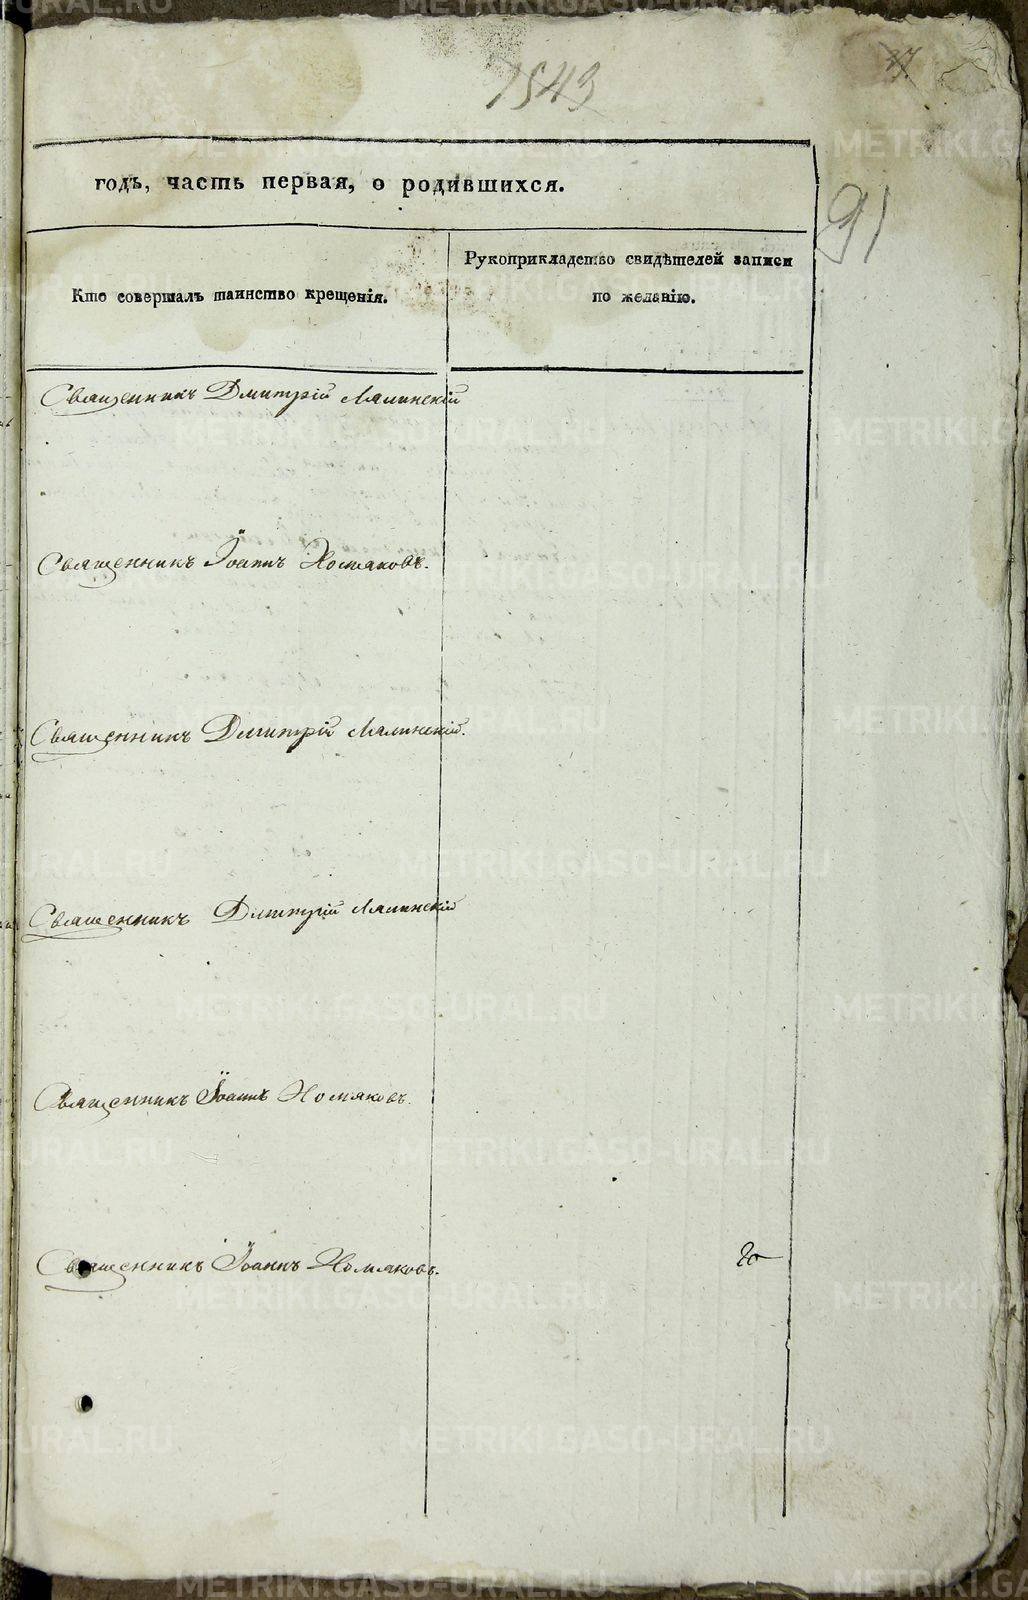 1543
37
годъ, часть первая, о родившихся.
91
Кто совершалъ таинство крещенія.
Рукоприкладство свидѣтелей записи
по желанію.
Священникъ Дмитрій Лялинскій
Священникъ Іоаннъ Хомяковъ.
Священникъ Дмитрій Лялинскій.
Священникъ Дмитрій Лялинскій
Священникъ Іоаннъ Хомяковъ.
Священникъ Іоаннъ Хомяковъ.
METRIKI.GASO-URAL.RU